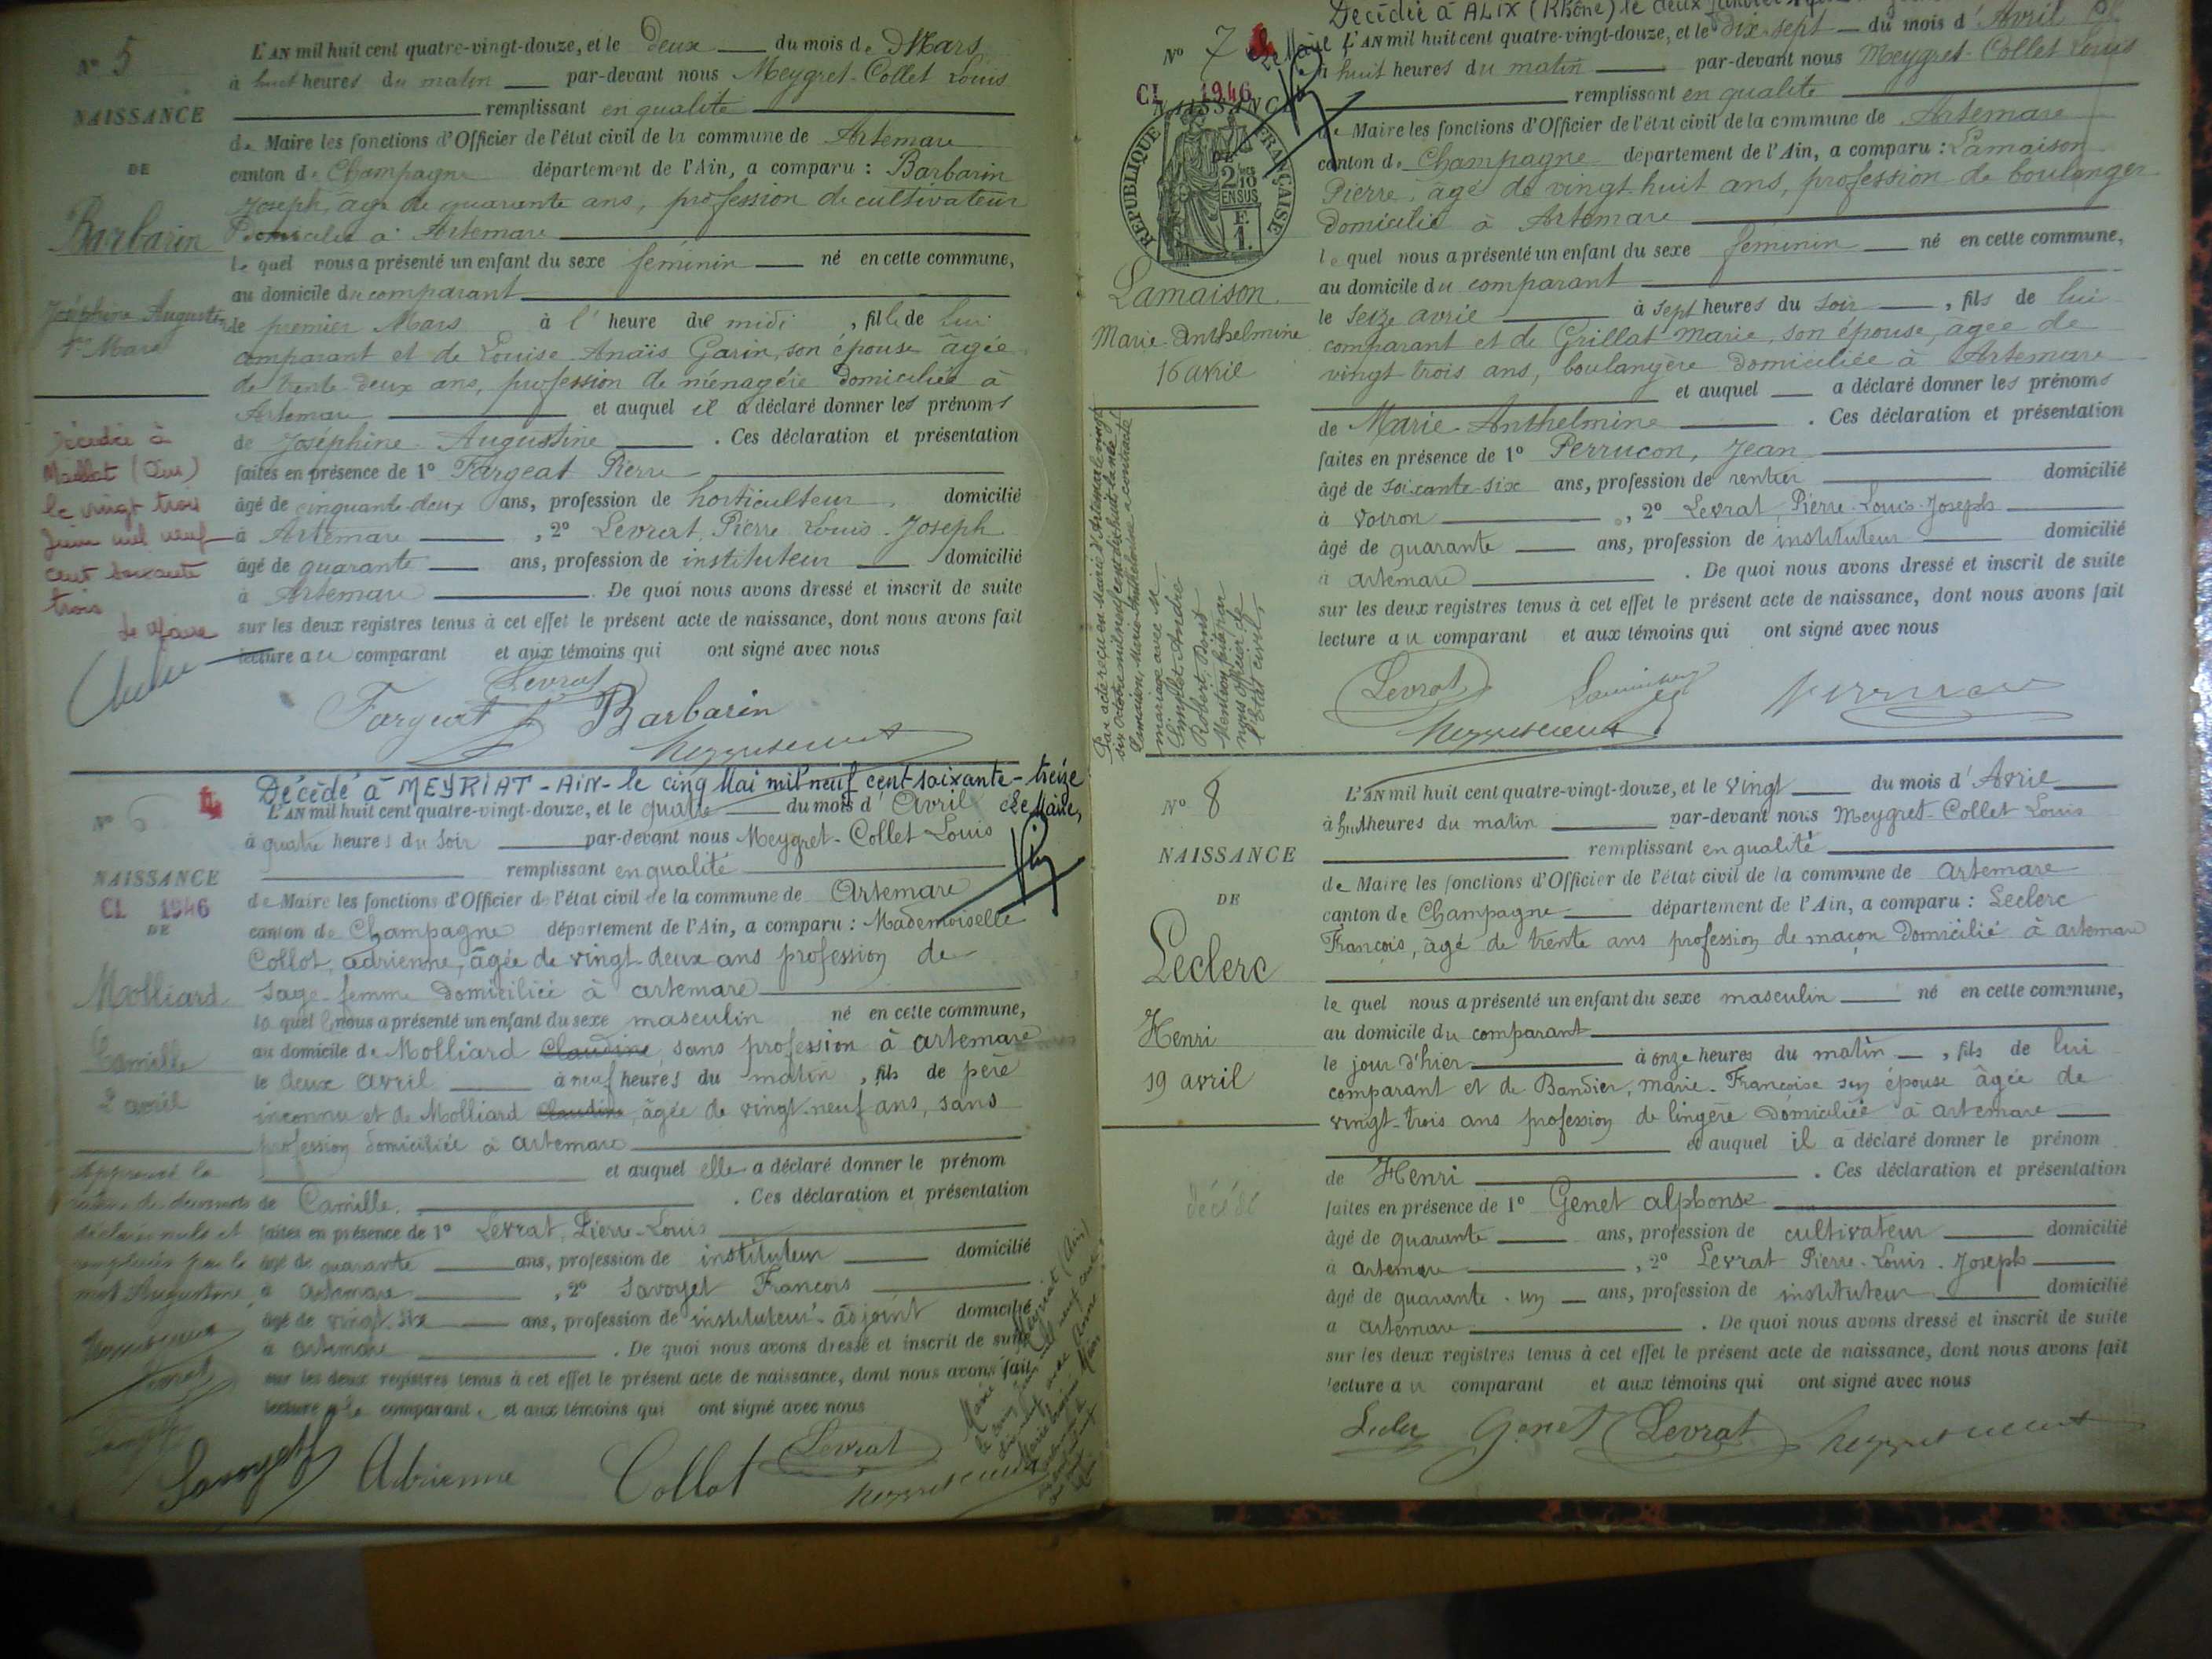 N° 5
NAISSANCE
DE
Barbarin
Joséphine Augustine
1er Mars
Décédée à
Maillat (Ain)
le vingt trois
Juin mil neuf
cent soixante
trois
Le Maire
L'AN mil huit cent quatre-vingt-douze, et le deux du mois de Mars
à huit heures du matin par-devant nous Meygret-Collet Louis
remplissant en qualité
de Maire les fonctions d'Officier de l'état civil de la commune de Artemare
canton de Champagne département de l'Ain, a comparu : Barbarin
Joseph, âgé de quarante ans, profession de cultivateur
Domicilié à Artemare
le quel nous a présenté un enfant du sexe féminin né en cette commune,
au domicile du comparant
le premier Mars à l' heure de midi , fille de lui
comparant et de Louise Anaïs Garin, son épouse âgée
de trente deux ans, profession de ménagère domiciliée à
Artemare et auquel il a déclaré donner les prénoms
de Joséphine Augustine . Ces déclaration et présentation
faites en présence de 1° Fargeat Pierre
âgé de cinquante-deux ans, profession de horticulteur domicilié
à Artemare , 2° Levrat, Pierre Louis Joseph
âgé de quarante ans, profession de instituteur domicilié
à Artemare . De quoi nous avons dressé et inscrit de suite
sur les deux registres tenus à cet effet le présent acte de naissance, dont nous avons fait
lecture au comparant et aux témoins qui ont signé avec nous
Levrat
Fargeat Barbarin
Décédé à MEYRIAT - AIN - le cinq Mai mil neuf cent soixante-treize
Le Maire,
N° 6
NAISSANCE
CL 1946
DE
Molliard
Camille
2 avril
Approuvé la
rature de deux mots
déclarés nuls et
remplacés par le
mot Augustine
Levrat
L'AN mil huit cent quatre-vingt-douze, et le quatre du mois d' Avril
à quatre heures du soir par-devant nous Meygret-Collet Louis
remplissant en qualité
de Maire les fonctions d'Officier de l'état civil de la commune de Artemare
canton de Champagne département de l'Ain, a comparu : Mademoiselle
Collot, adrienne, âgée de vingt-deux ans profession de
sage-femme domiciliée à artemare
la quelle nous a présenté un enfant du sexe masculin né en cette commune,
au domicile de Molliard Claudine, sans profession à artemare
le deux avril à neuf heures du matin , fils de père
inconnu et de Molliard Claudine, âgée de vingt-neuf ans, sans
profession domiciliée à artemare
et auquel elle a déclaré donner le prénom
de Camille . Ces déclaration et présentation
faites en présence de 1° Levrat, Pierre-Louis
âgé de quarante ans, profession de instituteur domicilié
à artemare , 2° Savoyet François
âgé de vingt-six ans, profession de instituteur-adjoint domicilié
à artemare . De quoi nous avons dressé et inscrit de suite
sur les deux registres tenus à cet effet le présent acte de naissance, dont nous avons fait
lecture à la comparante et aux témoins qui ont signé avec nous
Savoyet Adrienne Collot Levrat
Décédée à ALIX (Rhône) le deux
Le Maire
N° 7
CL 1946
NAISSANCE
RÉPUBLIQUE FRANÇAISE
2 10
EN SUS
F.
1.
Lamaison
Marie-Anthelmine
16 avril
Par acte reçu en Mairie d'Artemare le vingt
six Octobre mil neuf cent dix huit, la née
Lamaison, Marie-Anthelmine a contracté
mariage avec M.
André
Robert
Mention faite par
nous officier de
l'état civil,
L'AN mil huit cent quatre-vingt-douze, et le dix-sept du mois d' Avril
à huit heures du matin par-devant nous Meygret-Collet Louis
remplissant en qualité
de Maire les fonctions d'Officier de l'état civil de la commune de Artemare
canton de Champagne département de l'Ain, a comparu : Lamaison
Pierre, âgé de vingt-huit ans, profession de boulanger
Domicilié à Artemare
le quel nous a présenté un enfant du sexe féminin né en cette commune,
au domicile du comparant
le seize avril à sept heures du soir , fils de lui
comparant et de Grillat Marie, son épouse, âgée de
vingt-trois ans, boulangère domiciliée à Artemare
et auquel a déclaré donner les prénoms
de Marie-Anthelmine . Ces déclaration et présentation
faites en présence de 1° Perrucon, Jean
âgé de soixante-six ans, profession de rentier domicilié
à Voiron , 2° Levrat, Pierre-Louis-Joseph
âgé de quarante ans, profession de instituteur domicilié
à artemare . De quoi nous avons dressé et inscrit de suite
sur les deux registres tenus à cet effet le présent acte de naissance, dont nous avons fait
lecture au comparant et aux témoins qui ont signé avec nous
Levrat
N° 8
NAISSANCE
DE
Leclerc
Henri
19 avril
décédé
L'AN mil huit cent quatre-vingt-douze, et le vingt du mois d' Avril
à huit heures du matin par-devant nous Meygret-Collet Louis
remplissant en qualité
de Maire les fonctions d'Officier de l'état civil de la commune de artemare
canton de Champagne département de l'Ain, a comparu : Leclerc
François, âgé de trente ans profession de maçon domicilié à artemare
le quel nous a présenté un enfant du sexe masculin né en cette commune,
au domicile du comparant
le jour d'hier à onze heures du matin , fils de lui
comparant et de Bandier, marie-Françoise son épouse âgée de
vingt-trois ans profession de lingère domiciliée à artemare
et auquel il a déclaré donner le prénom
de Henri . Ces déclaration et présentation
faites en présence de 1° Genet alphonse
âgé de quarante ans, profession de cultivateur domicilié
à artemare , 2° Levrat Pierre-Louis-Joseph
âgé de quarante-un ans, profession de instituteur domicilié
à artemare . De quoi nous avons dressé et inscrit de suite
sur les deux registres tenus à cet effet le présent acte de naissance, dont nous avons fait
lecture au comparant et aux témoins qui ont signé avec nous
Genet Levrat